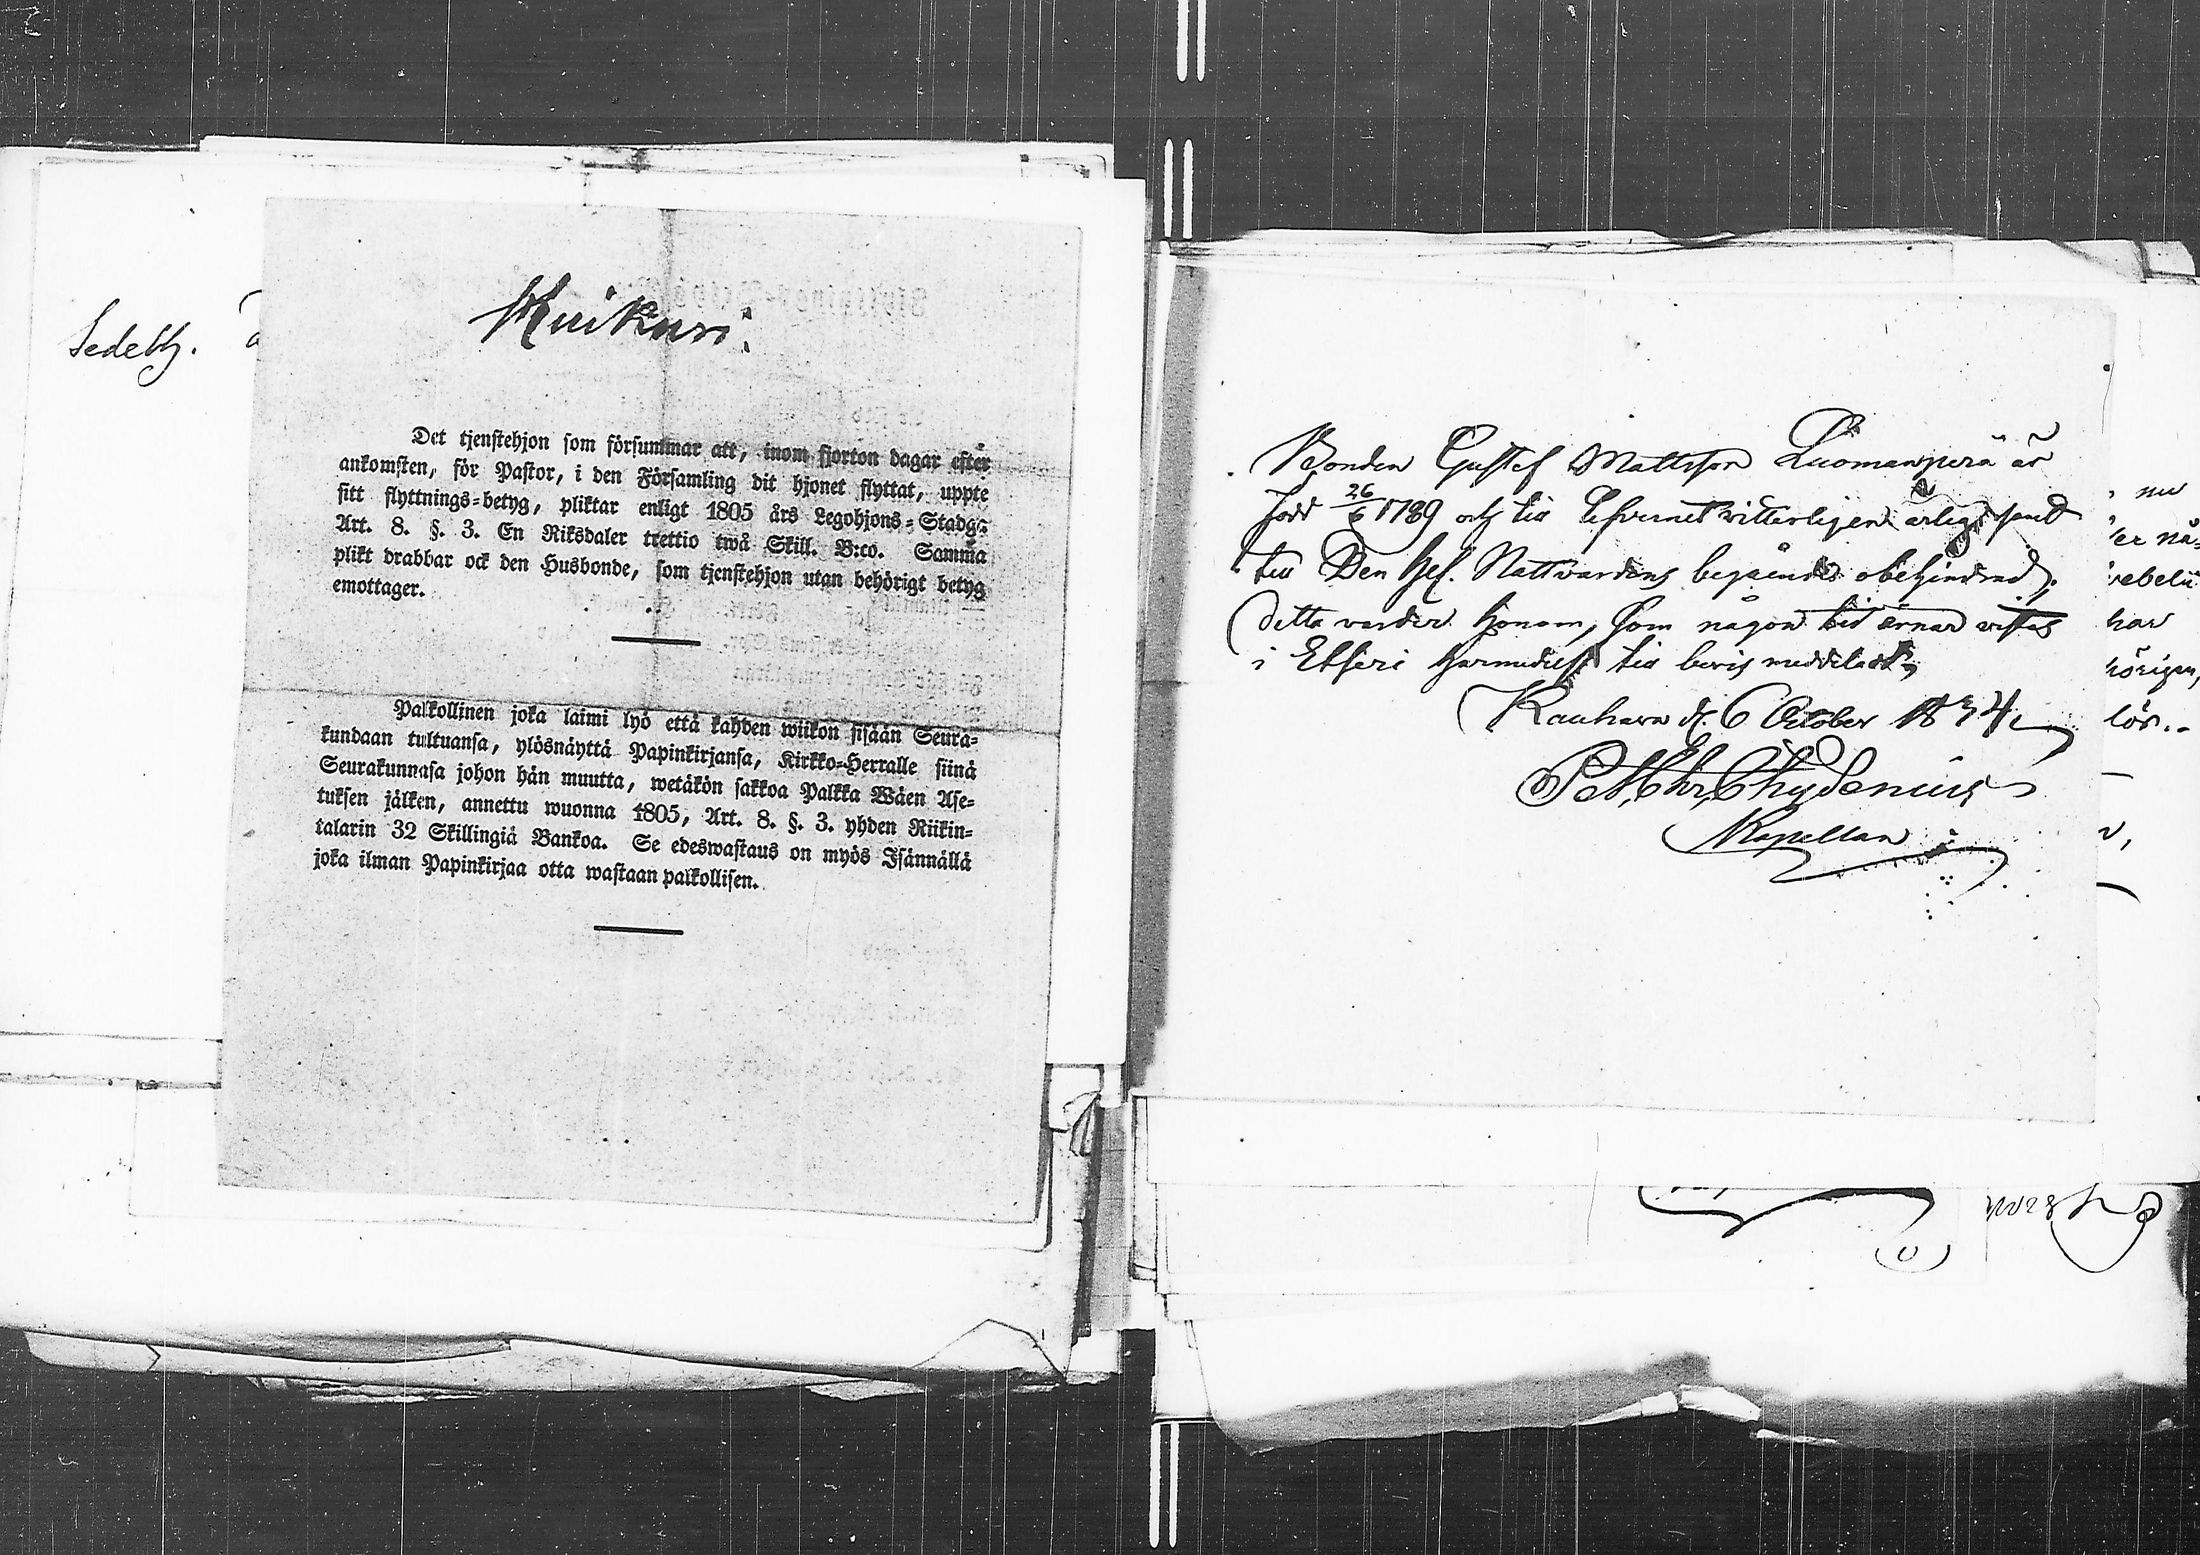 Sedebg.
Kuikuri.
Det tjenstehjon som försummar att, inom fjorton dagar efter
ankomsten, för Pastor, i den Församling dit hjonet flyttat, uppte
sitt flyttnings-betyg, pliktar enligt 1805 års Legohjons-Stadga
Art. 8. §. 3. En Riksdaler trettio twå Skill. B:co. Samma
plikt drabbar ock den Husbonde, som tjenstehjon utan behörigt betyg
emottager.
Palkollinen joka laimi lyö että kahden wiikon sisään Seura-
kundaan tultuansa, ylösnäyttä Papinkirjansa, Kirkko-Herralle siinä
Seurakunnasa johon hän muutta, wetäkön sakkoa Palkka Wäen Ase-
tuksen jälken, annettu wuonna 1805, Art. 8. §. 3. yhden Riikin-
talarin 32 Skillingiä Bankoa. Se edeswastaus on myös Isännällä
joka ilman Papinkirjaa otta wastaan palkollisen.
Bonden Gustef Mattsson Luomanperä är
född 26/6 1789 och till Lefvernet witterligen ärlig samt
till Den Hel. Nattvardens begående obehindrad;
detta varder honom, som någon tid ärnar vistas
i Etseri härmedelst till bevis meddeladt,
Kauhava d. 6 October 1834.
Pet. Ehr. Chydenius
Kapellan
nu
er nå-
vebelii
har
hörigen,
lör..